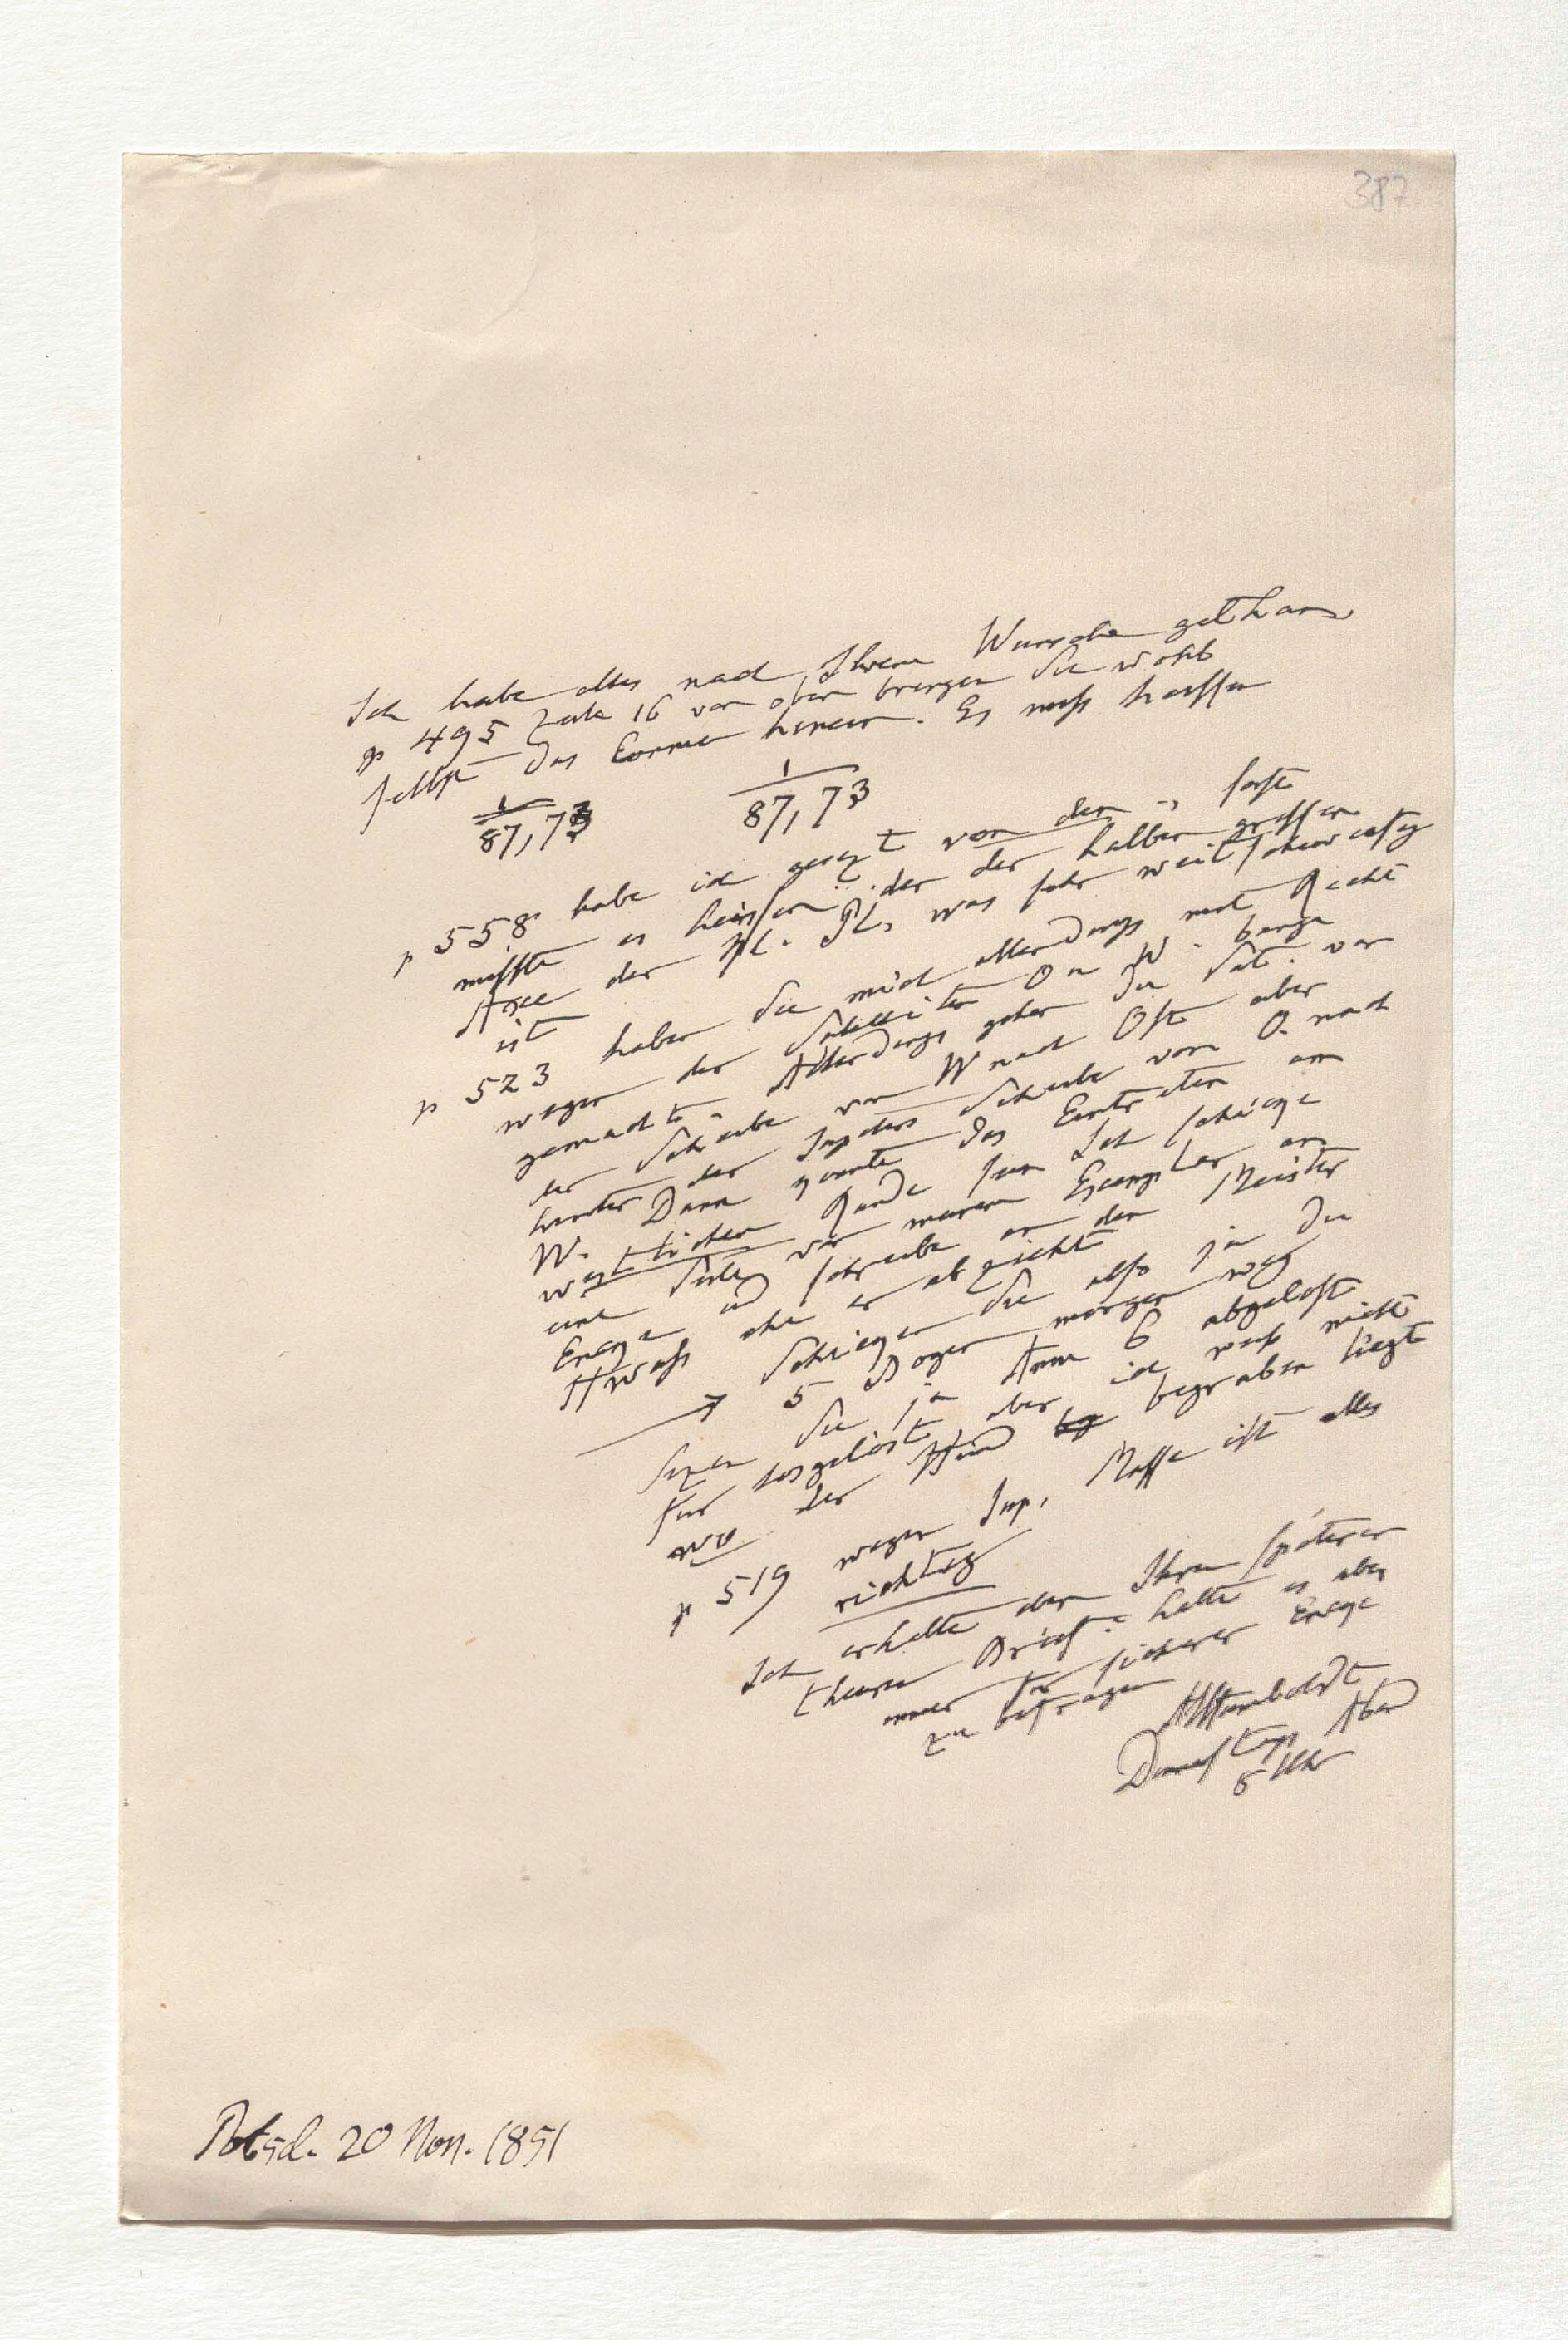 387
Ich habe alles nach Ihrem Wunsche gethan.
p 495 Zeile 16 von oben bringen Sie wohl
selbst das Comma hinein. Es muß heissen
1/87,73 1/87,73
p 558 habe ich gesezt von den, sonst
müsste es heissen: der der halben grossen
Axe der Pl. was sehr weitschweifig
ist
p 523 haben Sie mich allerdings mit Recht
wegen der Satelliten O u W. bange
gemacht. Allerdings gehen die Sat. vor
der Scheibe von W nach Ost aber
hinter der Jupiters Scheibe von O. nach
W. Dann konnte das Eintreten am
westlichen Rande sein Ich schicke
eine Seite von meinem Exemplar an
Encke und schreibe an den Meister
etwas ehe er abzieht
Schicken Sie also ja die
5 Bogen morgen weg
Seyn Sie ja Anm 6 abgelöst
für losgelöst aber ich weiß nicht
wo der Hund begraben liegt
p 519 wegen Jup. Masse ist alles
richtig
Ich erhalte den Ihren späteren
theuren Brief: halte es aber
immer für sicherer Encke
zu befragen
AHumboldt
Donnerstag Abend
8 Uhr
Potsd. 20 Nov. 1851